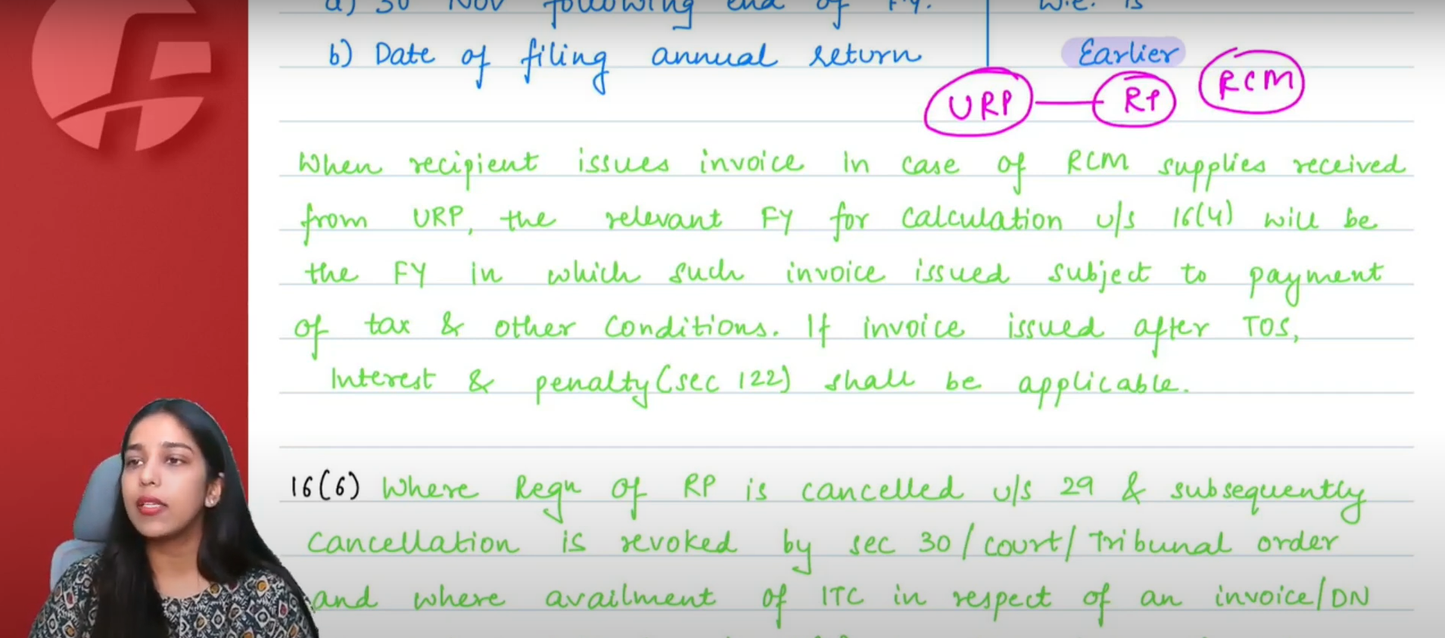 a) 30 Nov following end of FY.
w.e. is
b) Date of filing annual return
Earlier
URP RP RCM
When recipient issues invoice in case of RCM supplies received
from URP, the relevant FY for calculation u/s 16(4) will be
the FY in which such invoice issued subject to payment
of tax & other conditions. If invoice issued after TOS,
Interest & penalty (sec 122) shall be applicable.
16(6) Where Regn of RP is cancelled u/s 29 & subsequently
cancellation is revoked by sec 30/court/Tribunal order
and where availment of ITC in respect of an invoice/DN